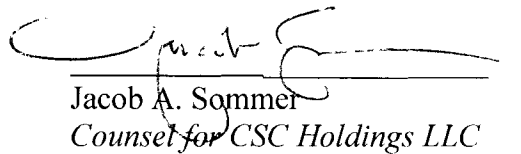 Jacob A. Sommer
Counsel for CSC Holdings LLC